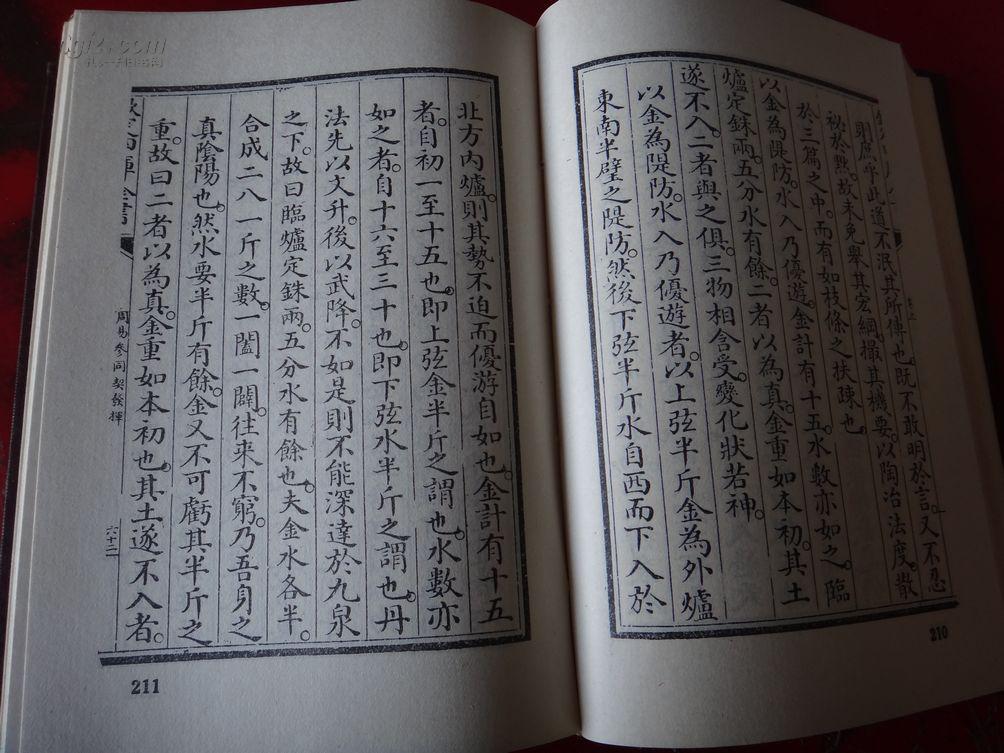 即庶乎此道不泯其所傳也。既不敢明於言。又不忍
祕於黙。故未免舉其宏綱。撮其機要。以陶冶法度。散
於三篇之中。而有如枝條之扶疎也。
以金為隄防。水入乃優遊。金計有十五。水數亦如之。臨
爐定銖兩。五分水有餘。二者以為真。金重如本初。其土
遂不入。二者與之俱。三物相含受。變化狀若神。
以金為隄防。水入乃優遊者。以上弦半斤金為外爐
東南半壁之隄防。然後下弦半斤水自西而下入於
210
北方內爐。則其勢不迫而優游自如也。金計有十五
者。自初一至十五也。即上弦金半斤之謂也。水數亦
如之者。自十六至三十也。即下弦水半斤之謂也。丹
法先以文升。後以武降。不如是則不能深達於九泉
之下。故曰臨爐定銖兩。五分水有餘也。夫金水各半。
合成二八一斤之數。一闔一闢。往來不窮。乃吾身之
真陰陽也。然水要半斤有餘。金又不可虧其半斤之
重。故曰二者以為真。金重如本初也。其土遂不入者。
周易參同契發揮
六十二
211